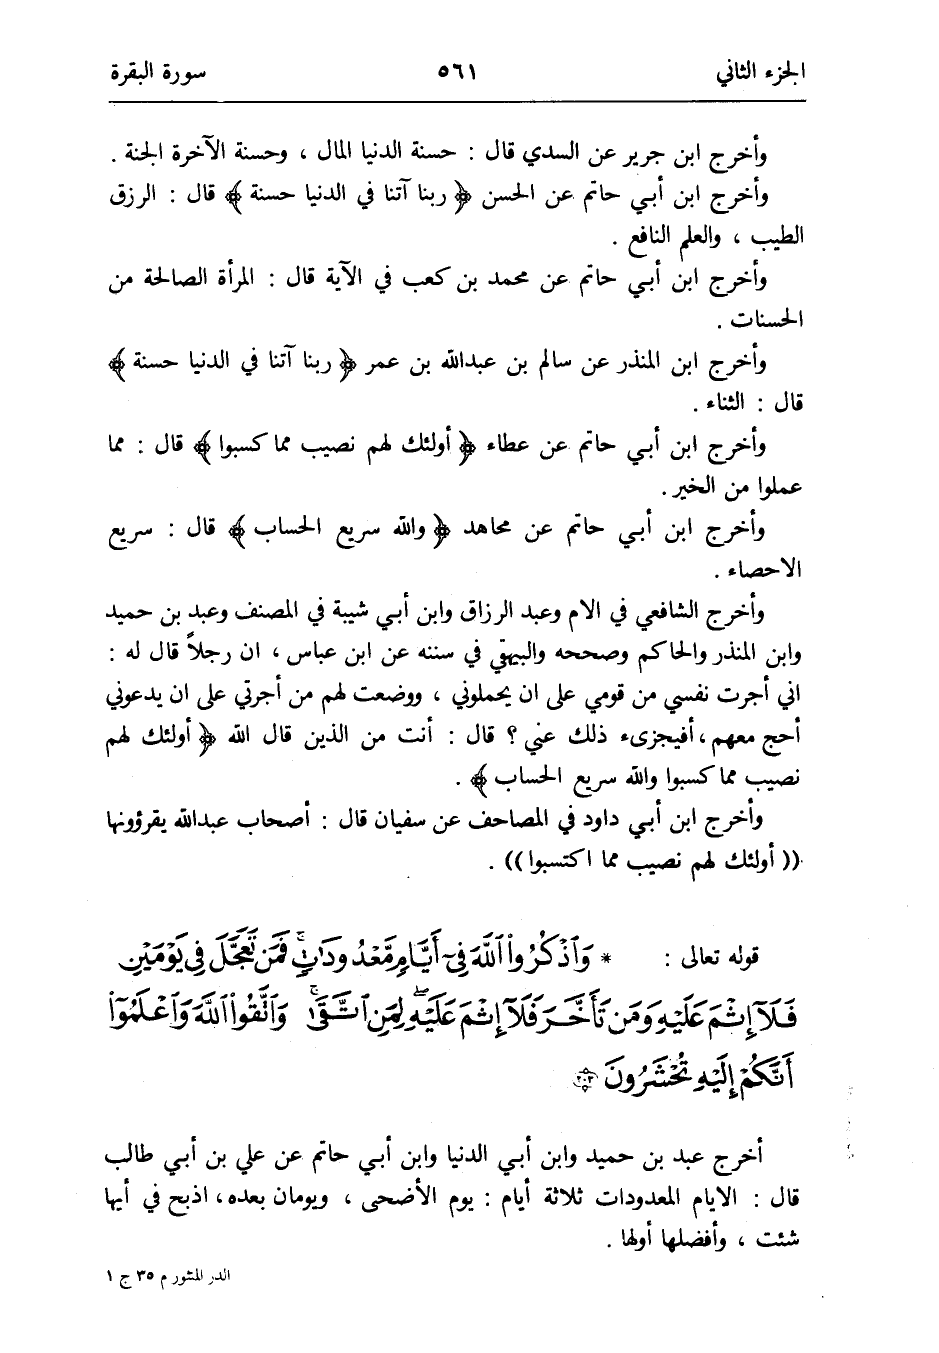 الجزء الثاني ٥٦١ سورة البقرة
وأخرج ابن جرير عن السدي قال : حسنة الدنيا المال ، وحسنة الآخرة الجنة .
وأخرج ابن أبي حاتم عن الحسن ﴿ ربنا آتنا في الدنيا حسنة ﴾ قال : الرزق
الطيب ، والعلم النافع .
وأخرج ابن أبي حاتم عن محمد بن كعب في الآية قال : المرأة الصالحة من
الحسنات .
وأخرج ابن المنذر عن سالم بن عبدالله بن عمر ﴿ ربنا آتنا في الدنيا حسنة ﴾
قال : الثناء .
وأخرج ابن أبي حاتم عن عطاء ﴿ أولئك لهم نصيب مما كسبوا ﴾ قال : مما
عملوا من الخير .
وأخرج ابن أبي حاتم عن مجاهد ﴿ والله سريع الحساب ﴾ قال : سريع
الاحصاء .
وأخرج الشافعي في الام وعبد الرزاق وابن أبي شيبة في المصنف وعبد بن حميد
وابن المنذر والحاكم وصححه والبيهقي في سننه عن ابن عباس ، ان رجلاً قال له :
اني أجرت نفسي من قومي على ان يحملوني ، ووضعت لهم من أجرتي على ان يدعوني
أحج معهم ، أفيجزىء ذلك عني ؟ قال : أنت من الذين قال الله ﴿ أولئك لهم
نصيب مما كسبوا والله سريع الحساب ﴾ .
وأخرج ابن أبي داود في المصاحف عن سفيان قال : أصحاب عبدالله يقرؤونها
(( أولئك لهم نصيب مما اكتسبوا )) .
قوله تعالى : * وَٱذْكُرُوا۟ ٱللَّهَ فِىٓ أَيَّامٍ مَّعْدُودَٰتٍ ۚ فَمَن تَعَجَّلَ فِى يَوْمَيْنِ
فَلَآ إِثْمَ عَلَيْهِ وَمَن تَأَخَّرَ فَلَآ إِثْمَ عَلَيْهِ ۖ لِمَنِ ٱتَّقَىٰ ۗ وَٱتَّقُوا۟ ٱللَّهَ وَٱعْلَمُوٓا۟
أَنَّكُمْ إِلَيْهِ تُحْشَرُونَ ٢٠٣
أخرج عبد بن حميد وابن أبي الدنيا وابن أبي حاتم عن علي بن أبي طالب
قال : الايام المعدودات ثلاثة أيام : يوم الأضحى ، ويومان بعده ، اذبح في أيها
شئت ، وأفضلها أولها .
الدر المنثور م ٣٥ ج ١